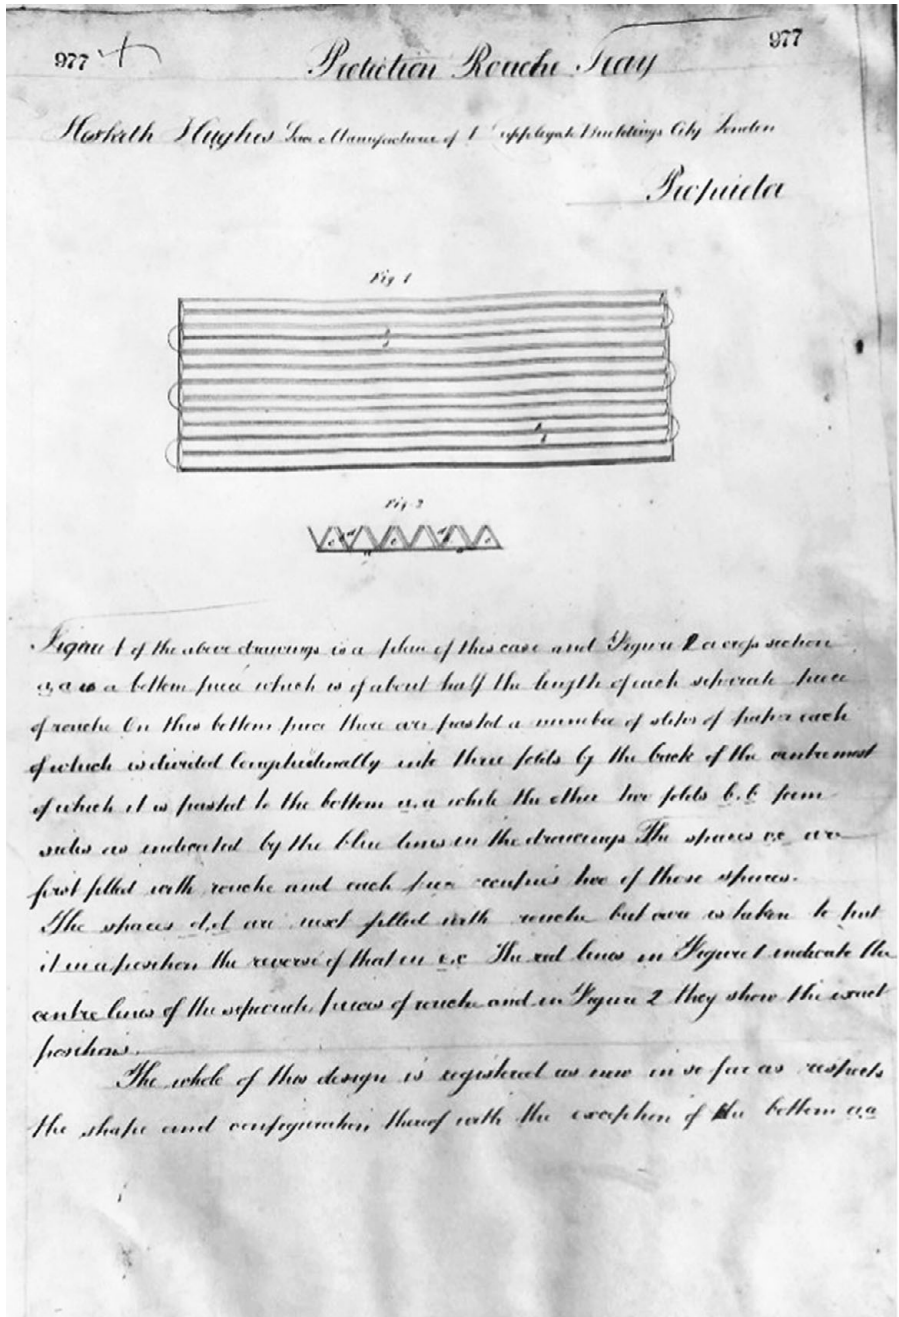 977 977
Protection Rouche Tray
Hesketh Hughes Lace Manufacturer of 1 Cripplegate Buildings City London
Proprietor
Fig 1
Fig 2
Figure 1 of the above drawings is a plan of this case and Figure 2 a cross section
a, a is a bottom piece which is of about half the length of each seperate piece
of rouche On this bottom piece there are pasted a number of slips of paper each
of which is divided longitudinally into three folds by the back of the centremost
of which it is pasted to the bottom a.a while the other two folds b.b form
sides as indicated by the blue lines in the drawings The spaces c.c are
first filled with rouche and each piece occupies two of those spaces.
The spaces d,d are next filled with rouche but care is taken to put
it in a position the reverse of that in c.c The red lines in Figure 1 indicate the
centre lines of the seperate pieces of rouche and in Figure 2 they show the exact
positions.
The whole of this design is registered as new in so far as respects
the shape and configuration thereof with the exception of the bottom a.a